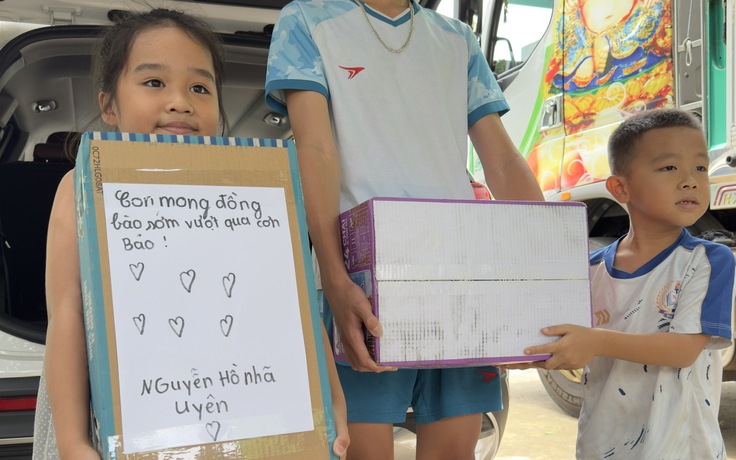 Con mong đồng
bào sớm vượt qua cơn
Bảo !
NGUYỄN HỒ NHÃ
UYÊN